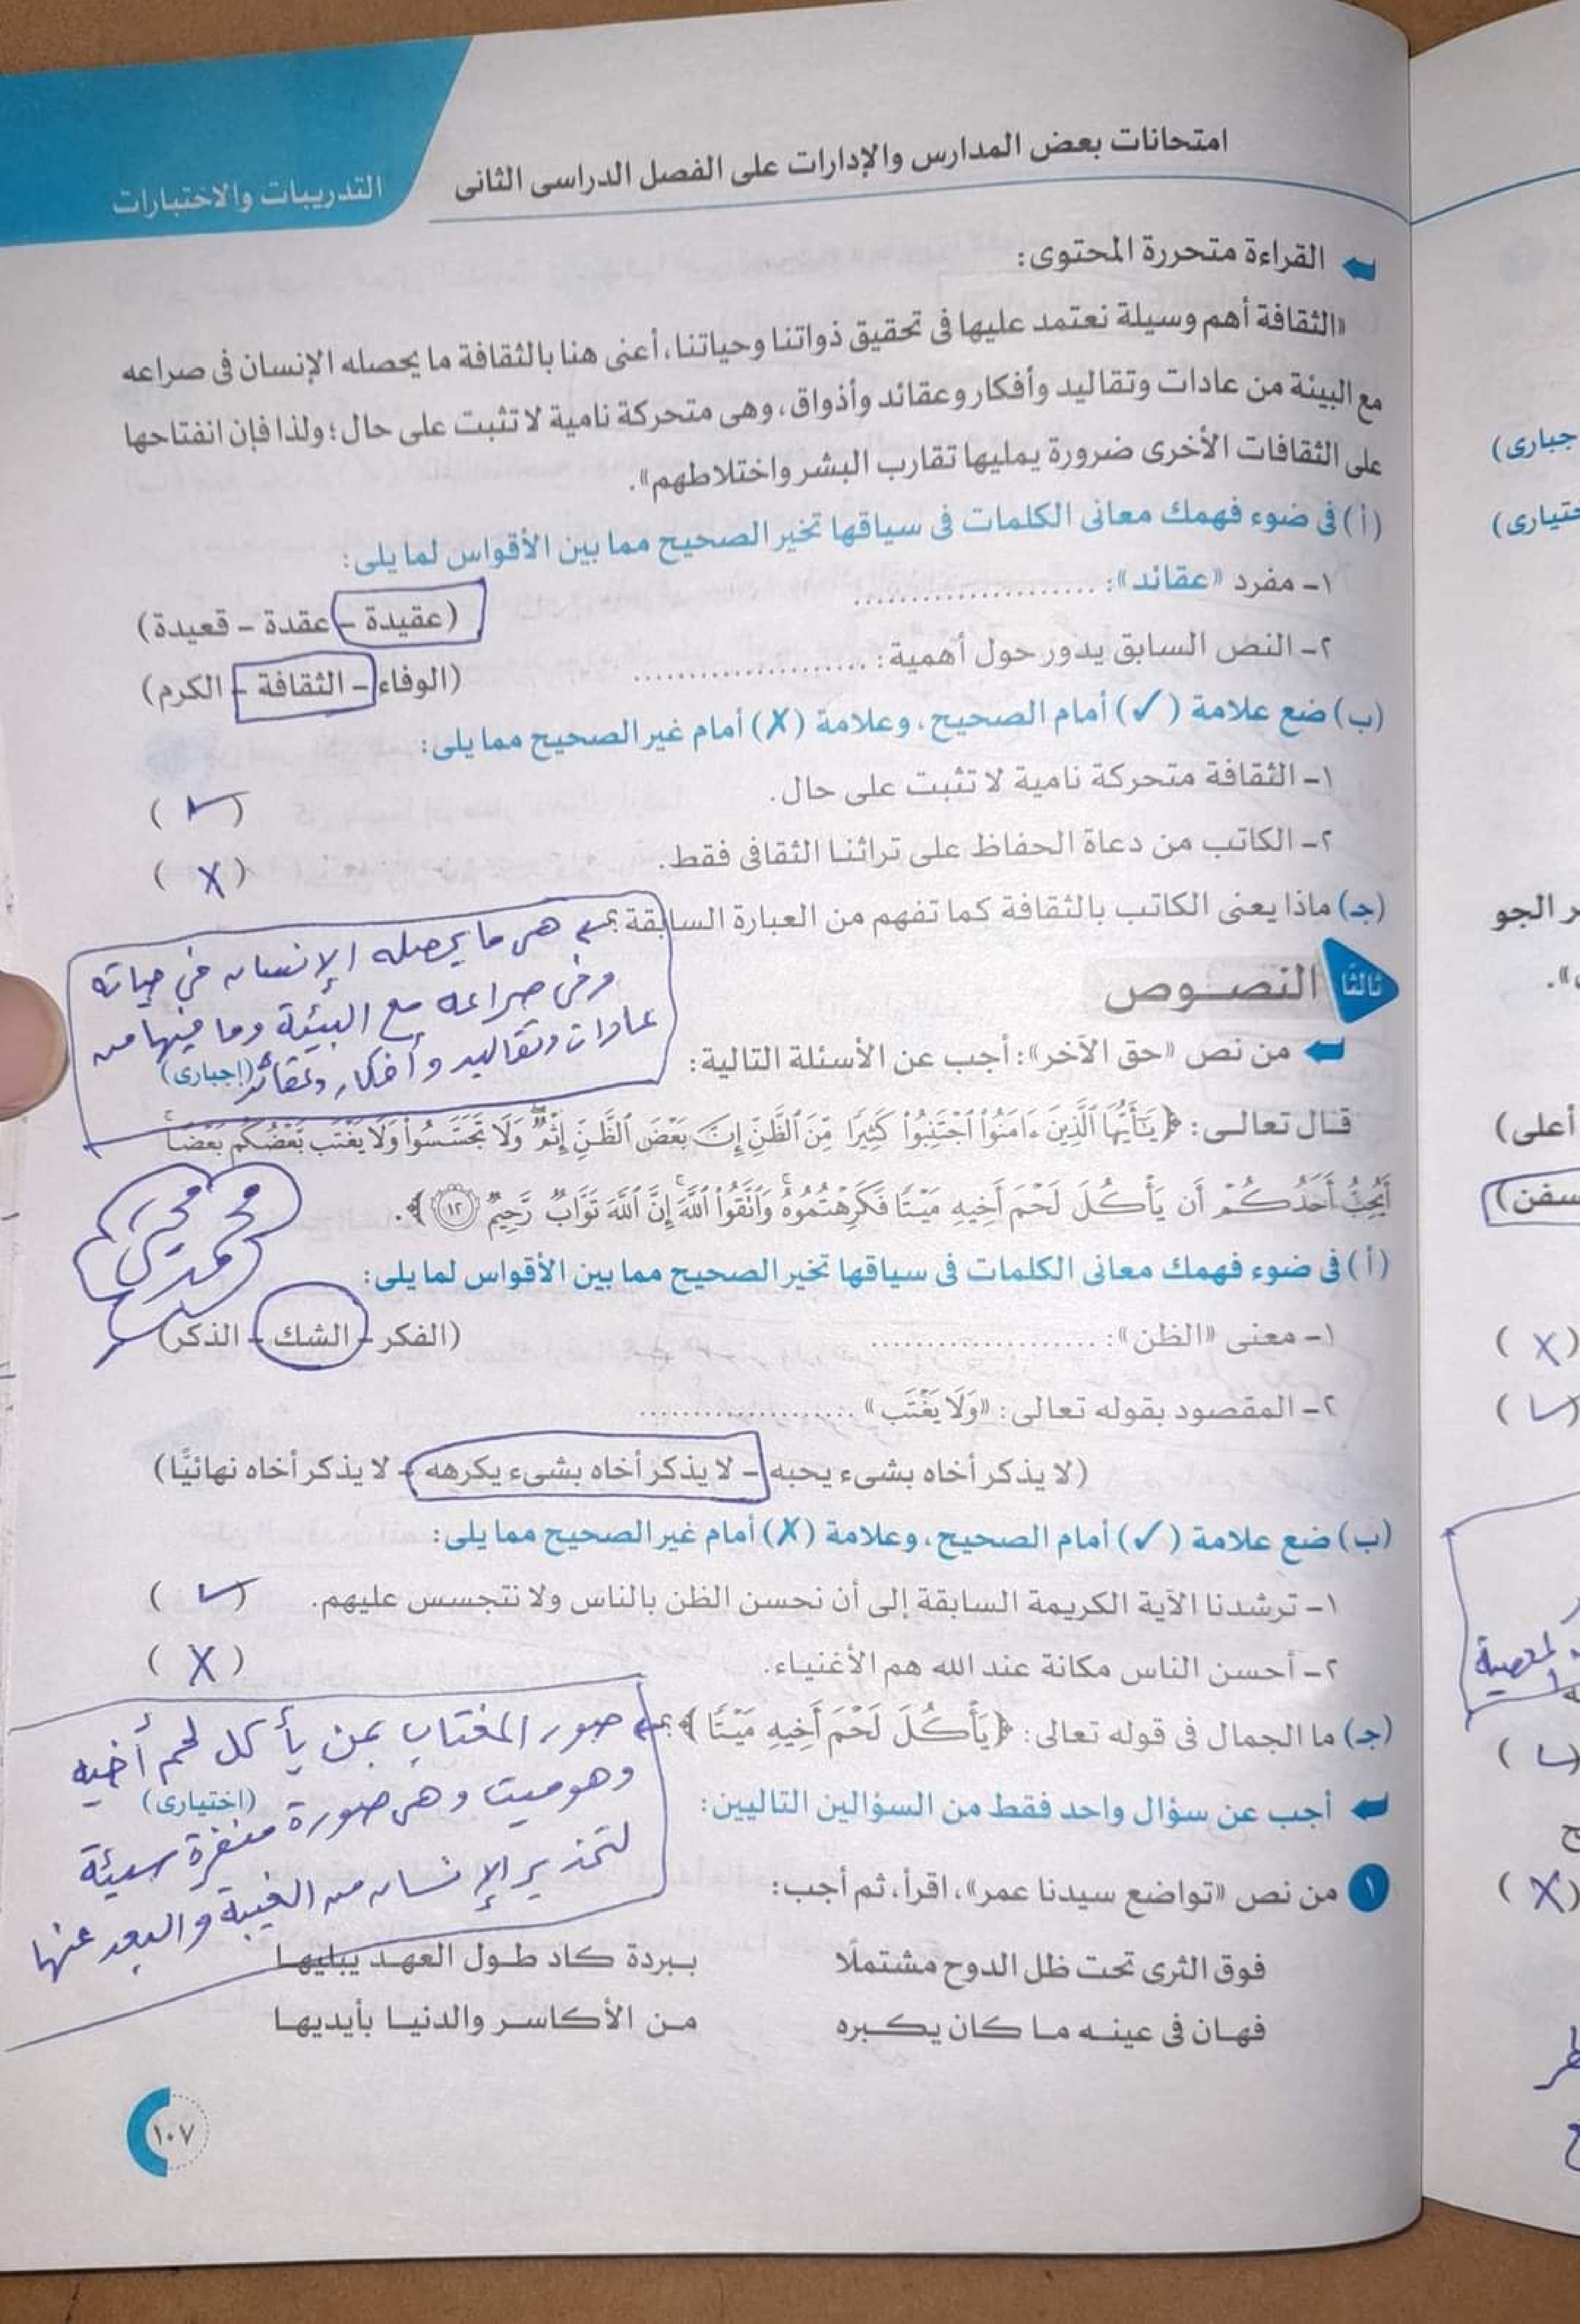 امتحانات بعض المدارس والإدارات على الفصل الدراسى الثانى
التدريبات والاختبارات
القراءة متحررة المحتوى:
«الثقافة أهم وسيلة نعتمد عليها فى تحقيق ذواتنا وحياتنا، أعنى هنا بالثقافة ما يحصله الإنسان فى صراعه
مع البيئة من عادات وتقاليد وأفكار وعقائد وأذواق، وهى متحركة نامية لا تثبت على حال؛ ولذا فإن انفتاحها
على الثقافات الأخرى ضرورة يمليها تقارب البشر واختلاطهم».
(أ) فى ضوء فهمك معانى الكلمات فى سياقها تخير الصحيح مما بين الأقواس لما يلى:
١- مفرد «عقائد»: ......................
(عقيدة - عقدة - قعيدة)
٢- النص السابق يدور حول أهمية: ......................
(الوفاء - الثقافة - الكرم)
(ب) ضع علامة (✓) أمام الصحيح، وعلامة (✗) أمام غير الصحيح مما يلى:
١- الثقافة متحركة نامية لا تثبت على حال.
(✓)
٢- الكاتب من دعاة الحفاظ على تراثنا الثقافى فقط.
(✗)
(جـ) ماذا يعنى الكاتب بالثقافة كما تفهم من العبارة السابقة؟
هى ما يحصله الإنسان فى حياته
وفى صراعه مع البيئة وما فيها من
عادات وتقاليد وأفكار وعقائد
ثالثًا النصوص
من نص «حق الآخر»: أجب عن الأسئلة التالية:
(إجبارى)
قال تعالى: ﴿يَٰٓأَيُّهَا ٱلَّذِينَ ءَامَنُوا۟ ٱجْتَنِبُوا۟ كَثِيرًا مِّنَ ٱلظَّنِّ إِنَّ بَعْضَ ٱلظَّنِّ إِثْمٌ ۖ وَلَا تَجَسَّسُوا۟ وَلَا يَغْتَب بَّعْضُكُم بَعْضًا ۚ
أَيُحِبُّ أَحَدُكُمْ أَن يَأْكُلَ لَحْمَ أَخِيهِ مَيْتًا فَكَرِهْتُمُوهُ ۚ وَٱتَّقُوا۟ ٱللَّهَ ۚ إِنَّ ٱللَّهَ تَوَّابٌ رَّحِيمٌ ١٢﴾.
(أ) فى ضوء فهمك معانى الكلمات فى سياقها تخير الصحيح مما بين الأقواس لما يلى:
١- معنى «الظن»: ......................
(الفكر - الشك - الذكر)
٢- المقصود بقوله تعالى: «وَلَا يَغْتَب» ......................
(لا يذكر أخاه بشىء يحبه - لا يذكر أخاه بشىء يكرهه - لا يذكر أخاه نهائيًّا)
(ب) ضع علامة (✓) أمام الصحيح، وعلامة (✗) أمام غير الصحيح مما يلى:
١- ترشدنا الآية الكريمة السابقة إلى أن نحسن الظن بالناس ولا نتجسس عليهم.
(✓)
٢- أحسن الناس مكانة عند الله هم الأغنياء.
(✗)
(جـ) ما الجمال فى قوله تعالى: ﴿يَأْكُلَ لَحْمَ أَخِيهِ مَيْتًا﴾؟
صور المغتاب بمن يأكل لحم أخيه
وهو ميت وهى صورة منفرة سيئة
لتحذير الإنسان من الغيبة والبعد عنها
أجب عن سؤال واحد فقط من السؤالين التاليين:
(اختيارى)
١ من نص «تواضع سيدنا عمر»، اقرأ، ثم أجب:
فوق الثرى تحت ظل الدوح مشتملًا ببردة كاد طول العهد يبليها
فهان فى عينه ما كان يكبره من الأكاسر والدنيا بأيديها
١٠٧
ر الجو
أعلى)
سفن)
(✗)
(✓)
(✓)
(✗)